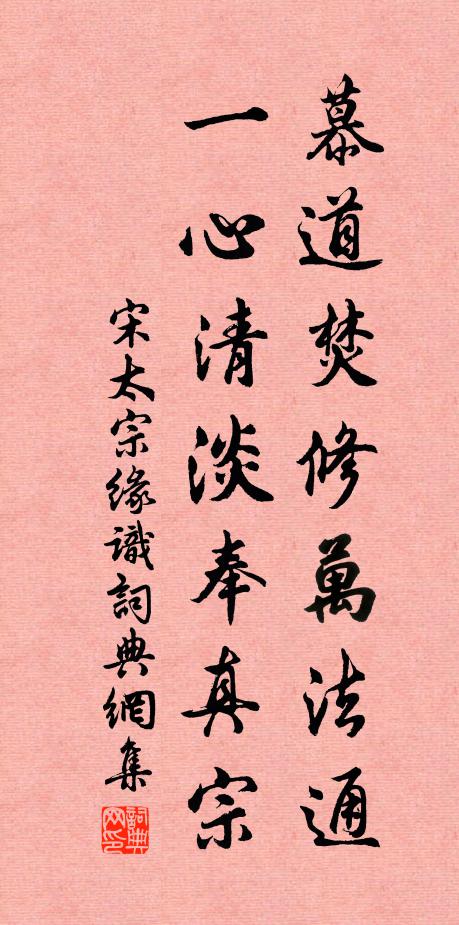 慕道焚修萬法通
一心清淡奉真宗
宋太宗緣識詞典網集
詞典网印